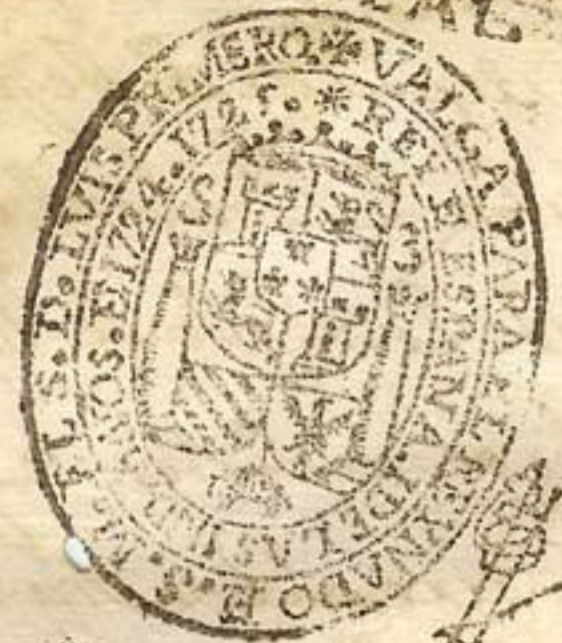 VALGA PARA EL REYNADO E.S.M. EL S.D. LVIS PRIMERO.
REY E ESPANA. I DE LAS IND. AÑOS. E1724. 1725.